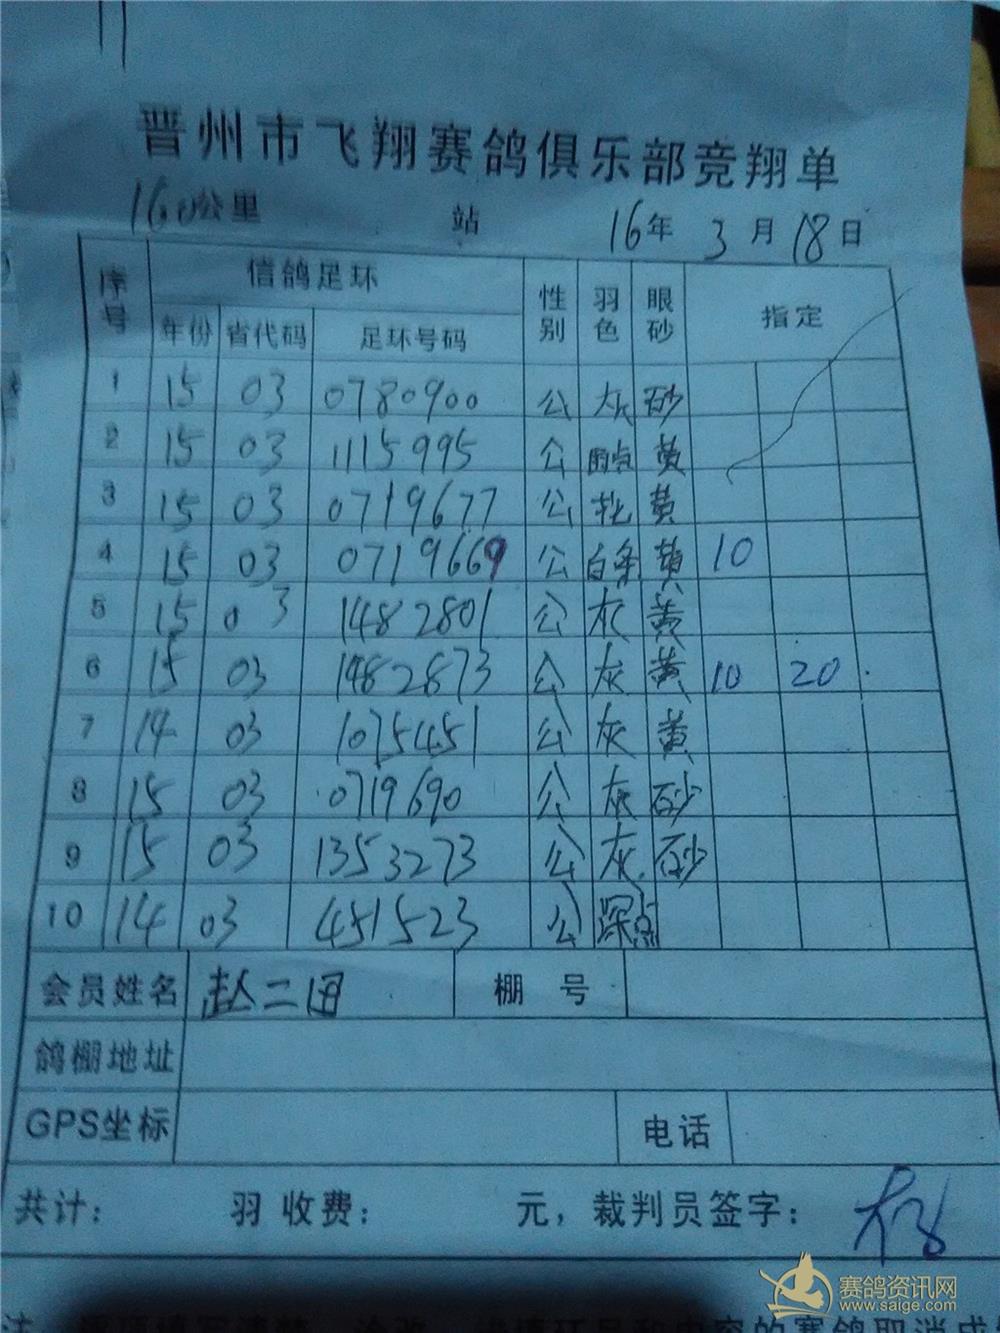 晋州市飞翔赛鸽俱乐部竞翔单
160公里 站 16年 3月 18日
序号 信鸽足环 性别 羽色 眼砂 指定
年份 省代码 足环号码
1 15 03 0780900 公 灰 砂
2 15 03 1115995 公 黄
3 15 03 0719677 公 黄
4 15 03 0719669 公 白条 黄 10
5 15 03 1482801 公 灰 黄
6 15 03 1482873 公 灰 黄 10 20
7 14 03 1075451 公 灰 黄
8 15 03 0719690 公 灰 砂
9 15 03 1353273 公 灰 砂
10 14 03 451523 公 深点
会员姓名 赵二 棚号
鸽棚地址
GPS坐标 电话
共计： 羽 收费： 元，裁判员签字：
赛鸽资讯网
www.saige.com